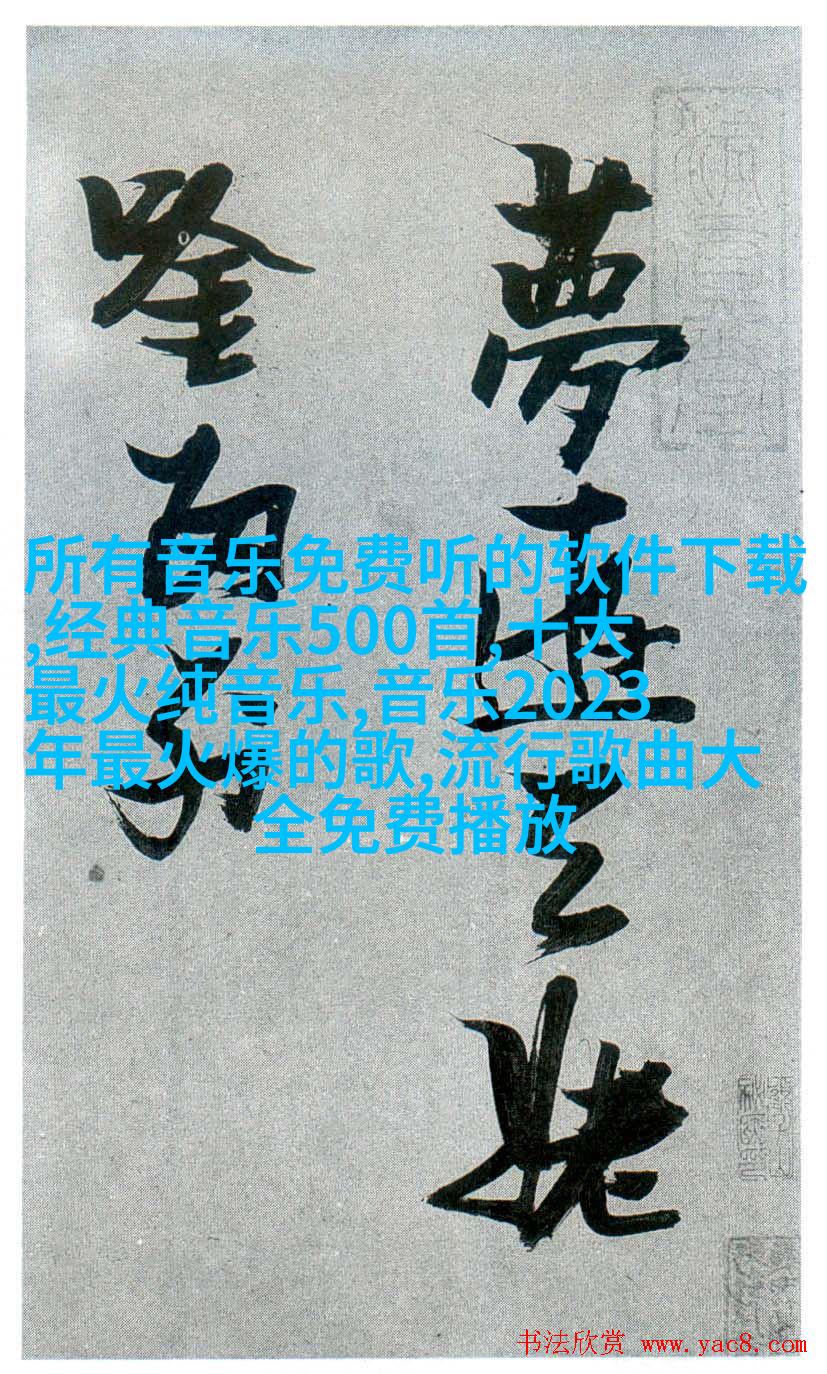 夢遊天姥
唫留别
所有音乐免费听的软件下载
,经典音乐500首,十大
最火纯音乐,音乐2023
年最火爆的歌,流行歌曲大
全免费播放
书法欣赏 www.yac8.com